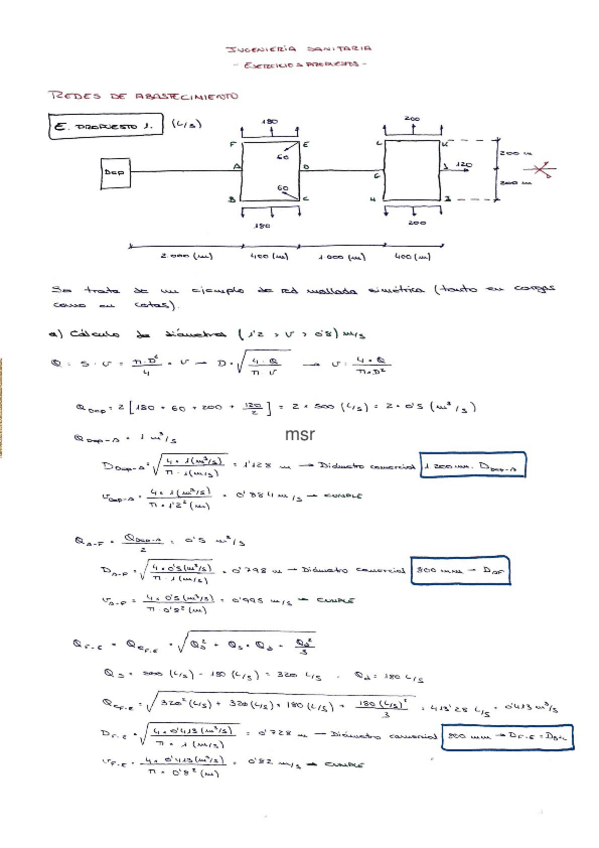 INGENIERÍA SANITARIA
- EJERCICIOS PROPUESTOS -
REDES DE ABASTECIMIENTO
E. PROPUESTO 1. (L/s)
180
200
F
E
L
K
60
200 m
Dep
A
D
G
J
120
60
200 m
B
C
H
I
180
200
2.000 (m)
400 (m)
1000 (m)
400 (m)
Se trata de un ejemplo de red mallada simétrica (tanto en cargas
como en cotas).
a) Cálculo de diámetros (1'2 > V > 0'8) m/s
Q = S · V = π·D²/4 · V → D = √(4·Q/π·V) → V = 4·Q/π·D²
Q Dep = 2 [180 + 60 + 200 + 120/2] = 2 × 500 (L/s) = 2 × 0'5 (m³/s)
Q Dep-A = 1 m³/s
msr
D Dep-A = √(4·1(m³/s)/π·1(m/s)) = 1'128 m → Diámetro comercial 1200 mm. D Dep-A
V Dep-A = 4·1(m³/s)/π·1'2²(m) = 0'884 m/s → CUMPLE
Q A-F = Q Dep-A/2 = 0'5 m³/s
D A-F = √(4·0'5(m³/s)/π·1(m/s)) = 0'798 m → Diámetro comercial 800 mm → D AF
V A-F = 4·0'5(m³/s)/π·0'8²(m) = 0'995 m/s → CUMPLE
Q F-E = Q eF-E = √(Q s² + Q s · Q d + Q d²/3)
Q s = 500 (L/s) - 180 (L/s) = 320 L/s . Q d = 180 L/s
Q eF-E = √(320²(L/s) + 320(L/s)·180(L/s) + 180(L/s)²/3) = 413'28 L/s = 0'413 m³/s
D F-E = √(4·0'413(m³/s)/π·1(m/s)) = 0'728 m → Diámetro comercial 800 mm → D F-E = D B-C
V F-E = 4·0'413(m³/s)/π·0'8²(m) = 0'82 m/s → CUMPLE